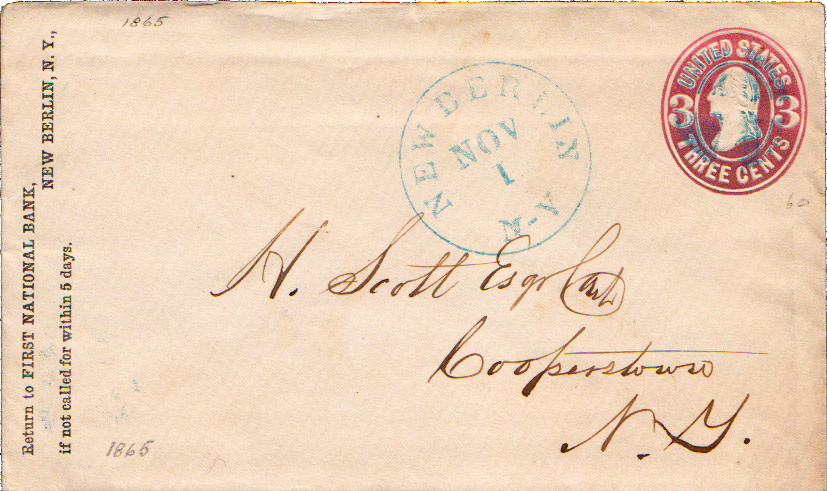 1865
Return to FIRST NATIONAL BANK,
NEW BERLIN, N. Y.,
if not called for within 5 days.
NEW BERLIN
NOV
1
N-Y
UNITED STATES
3 3
THREE CENTS
60
H. Scott Esqr Cash
Cooperstown
N. Y.
1865